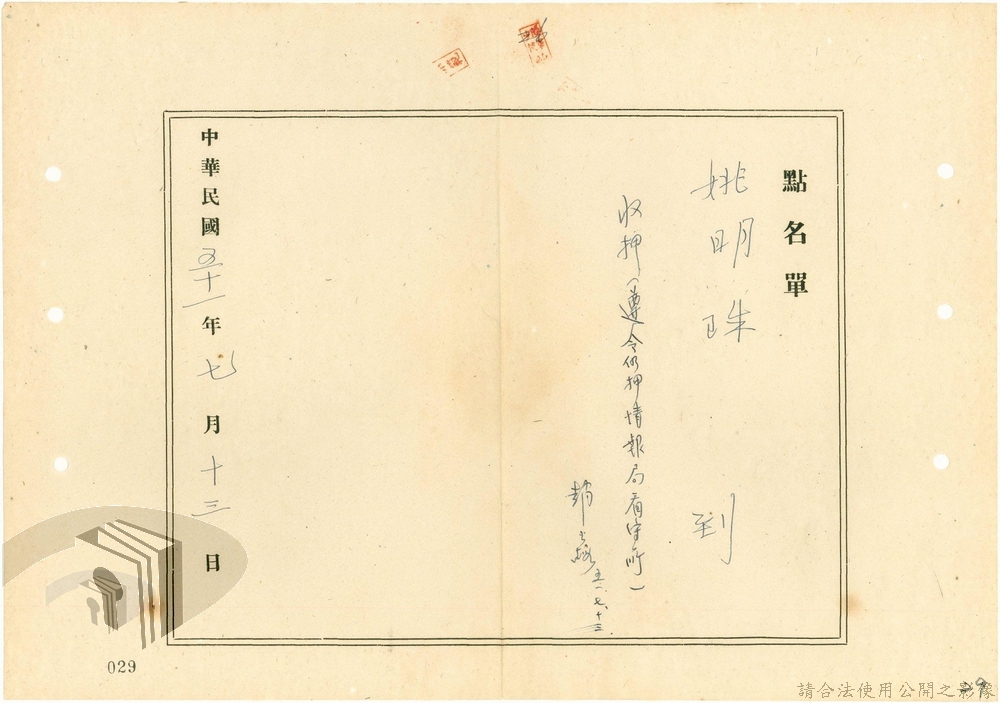 點名單
姚明珠 到
收押(遵令仍押情報局看守所)
趙 五一、七、十三
中華民國五十一年七月十三日
029
29
請合法使用公開之影像